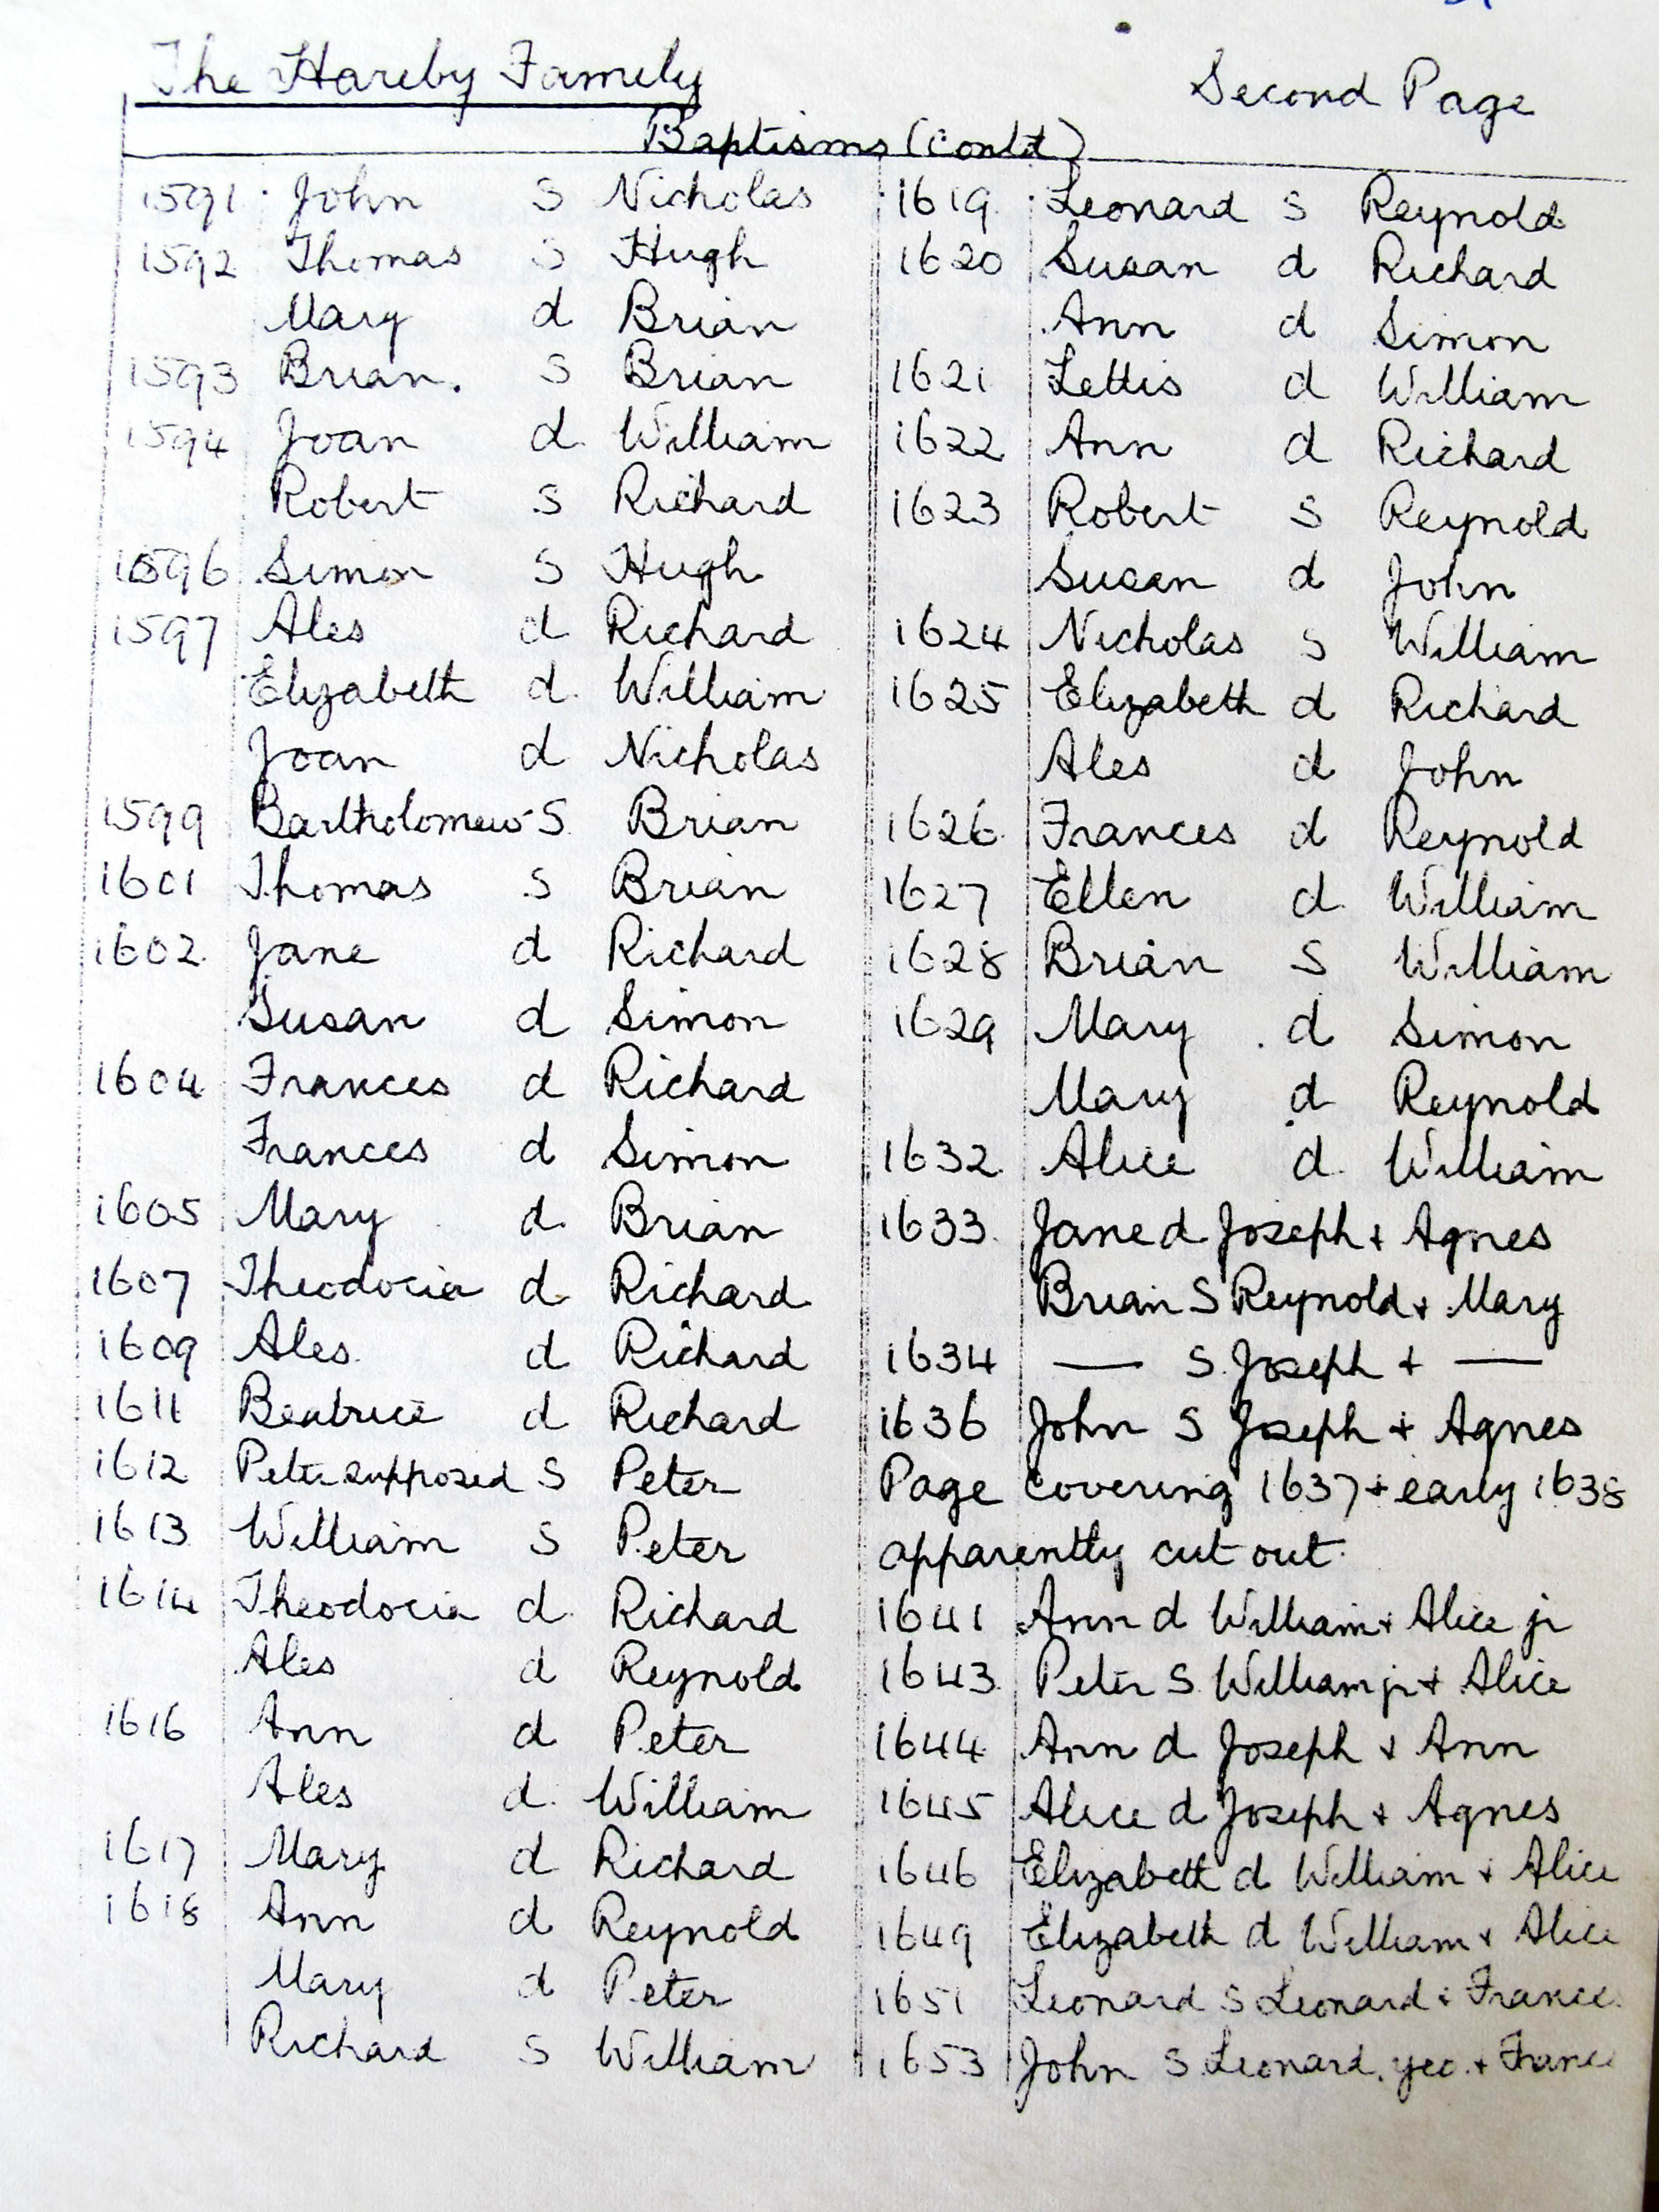 The Hareby Family
Second Page
Baptisms (Contd)
1591 John S Nicholas
1592 Thomas S Hugh
Mary d Brian
1593 Brian. S Brian
1594 Joan d William
Robert S Richard
1596 Simon S Hugh
1597 Ales d Richard
Elizabeth d William
Joan d Nicholas
1599 Bartholomew S Brian
1601 Thomas S Brian
1602 Jane d Richard
Susan d Simon
1604 Frances d Richard
Frances d Simon
1605 Mary d Brian
1607 Theodocia d Richard
1609 Ales d Richard
1611 Beatrice d Richard
1612 Peter supposed S Peter
1613 William S Peter
1614 Theodocia d Richard
Ales d Reynold
1616 Ann d Peter
Ales d William
1617 Mary d Richard
1618 Ann d Reynold
Mary d Peter
Richard S William
1619 Leonard S Reynold
1620 Susan d Richard
Ann d Simon
1621 Lettis d William
1622 Ann d Richard
1623 Robert S Reynold
Susan d John
1624 Nicholas S William
1625 Elizabeth d Richard
Ales d John
1626 Frances d Reynold
1627 Ellen d William
1628 Brian S William
1629 Mary d Simon
Mary d Reynold
1632 Alice d William
1633 Jane d Joseph + Agnes
Brian S Reynold + Mary
1634 — S Joseph + —
1636 John S Joseph + Agnes
Page covering 1637 + early 1638
apparently cut out.
1641 Ann d William + Alice jr
1643 Peter S William jr + Alice
1644 Ann d Joseph + Ann
1645 Alice d Joseph + Agnes
1646 Elizabeth d William + Alice
1649 Elizabeth d William + Alice
1651 Leonard S Leonard + France
1653 John S Leonard, yeo. + Franc